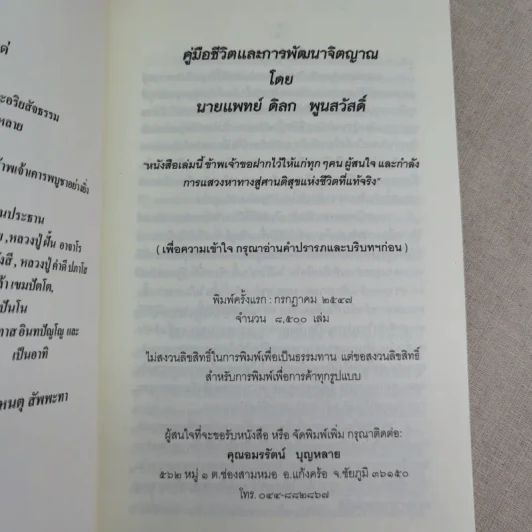 ด่
ะอริยสัจธรรม
หลาย
นประธาน
ย ,หลวงปู่ฝั้น อาจาโร
, หลวงปู่คำดี ปภาโส
เขมปัตโต,
ปันโน
อินทปัญโญ และ
เป็นอาทิ
หนตุ สัพพะทา
คู่มือชีวิตและการพัฒนาจิตญาณ
โดย
นายแพทย์ ดิลก พูนสวัสดิ์
"หนังสือเล่มนี้ ข้าพเจ้าขอฝากไว้ให้แก่ทุก ๆคน ผู้สนใจ และกำลัง
การแสวงหาทางสู่ศานติสุขแห่งชีวิตที่แท้จริง"
( เพื่อความเข้าใจ กรุณาอ่านคำปรารภและบริบทฯก่อน )
พิมพ์ครั้งแรก : กรกฎาคม ๒๕๔๗
จำนวน ๘,๕๐๐ เล่ม
ไม่สงวนลิขสิทธิ์ในการพิมพ์เพื่อเป็นธรรมทาน แต่ขอสงวนลิขสิทธิ์
สำหรับการพิมพ์เพื่อการค้าทุกรูปแบบ
ผู้สนใจที่จะขอรับหนังสือ หรือ จัดพิมพ์เพิ่ม กรุณาติดต่อ:
คุณอมรรัตน์ บุญหลาย
๕๖๒ หมู่ ๑ ต.ช่องสามหมอ อ.แก้งคร้อ จ.ชัยภูมิ ๓๖๑๕๐
โทร. ๐๔๔-๘๘๒๘๖๗